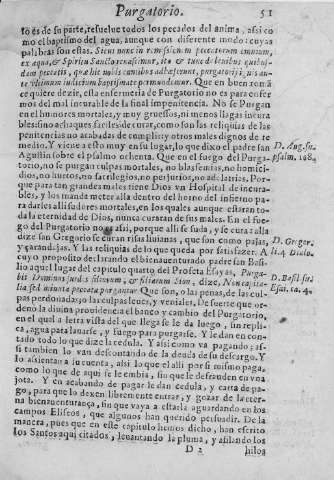 Purgatorio. 51
to es de su parte, resuelue todos los pecados del anima, assi co
mo el baptismo del agua, aunque con diferente modo: cuyas
palabras son estas. Sicut nunc in remissionem peccatorum omnium,
ex aqua, & Spiritu Sancto renascimur, ita & tunc
peccatis, quæ hic nobis adhæserunt, purgatorij,
iudicium Baptismate permundemur. Que en buen romã
ce quiere dezir, esta enfermeria de Purgatorio no es para enfer
mos del mal incurable de la final impenitencia. No se Purgan
en el humores mortales, y muy gruessos, ni menos llagas incura
bles: sino achaques faciles de curar, como son las reliquias de las
penitencias no acabadas de cumplir, y otros males dignos de re
medio. Y viene a esto muy en su lugar, lo que dixo el padre san
D. Aug. su.
psalm. 108.
Agustin sobre el psalmo ochenta. Que en el fuego del Purga
torio, no se purgan culpas mortales, no blasfemias, no homici-
dios, no hurtos, no sacrilegios, no perjurios, no adulterios. Por
que para tan grandes males tiene Dios vn Hospital de incura-
bles, y los manda meter alla dentro del horno del infierno pa
ra darles alli sudores mortales, en los quales aunque estaran to
da la eternidad de Dios, nunca curaran de sus males. En el fue
go del Purgatorio no assi, porque alli se suda, y se cura a lla
dize san Gregorio se curan cosas liuianas, que son como pajas,
D. Gregor.
li. 4. Dialo.
y çarandajas. Y las reliquias de lo que queda por satisfazer. A
cuyo proposito declarando el bienauenturado padre san Basi-
lio aquel lugar del capitulo quarto del Profeta Esayas, Purga-
D. Basil. su.
Esai. ca. 4.
bit Dominus sordes filiorum, & filiarum Sion, dize, Non capita-
lia sed minuta peccata purgantur. Que son, o las penas, de las cul-
pas perdonadas; o las culpas leues, y veniales. De suerte que or-
deno la diuina prouidencia el banco y cambio del Purgatorio,
en el qual a letra vista del que llega se le da luego, sin repli-
ca, agua para lauarse, y fuego para purgarse. Y le dan en con-
tado todo lo que dize la cedula. Y assi como va pagando; as-
si tambien lo van descontando de la deuda de su descargo. Y
lo assientan a su cuenta, assi lo que el alli por si mismo paga,
como lo que de aqui se le embia, sin que le defrauden en vna
jota. Y en acabando de pagar le dan cedula, y carta de pa-
go, para que lo dexen libremente entrar, y gozar de la eter-
na bienauenturança, sin que vaya a estarla aguardando en los
campos Eliseos, que algunos han querido persuadir. De la
manera, pues que en este capitulo hemos dicho, han escrito
los Santos aqui citados, leuantando la pluma, y afilando los
D 2 hilos